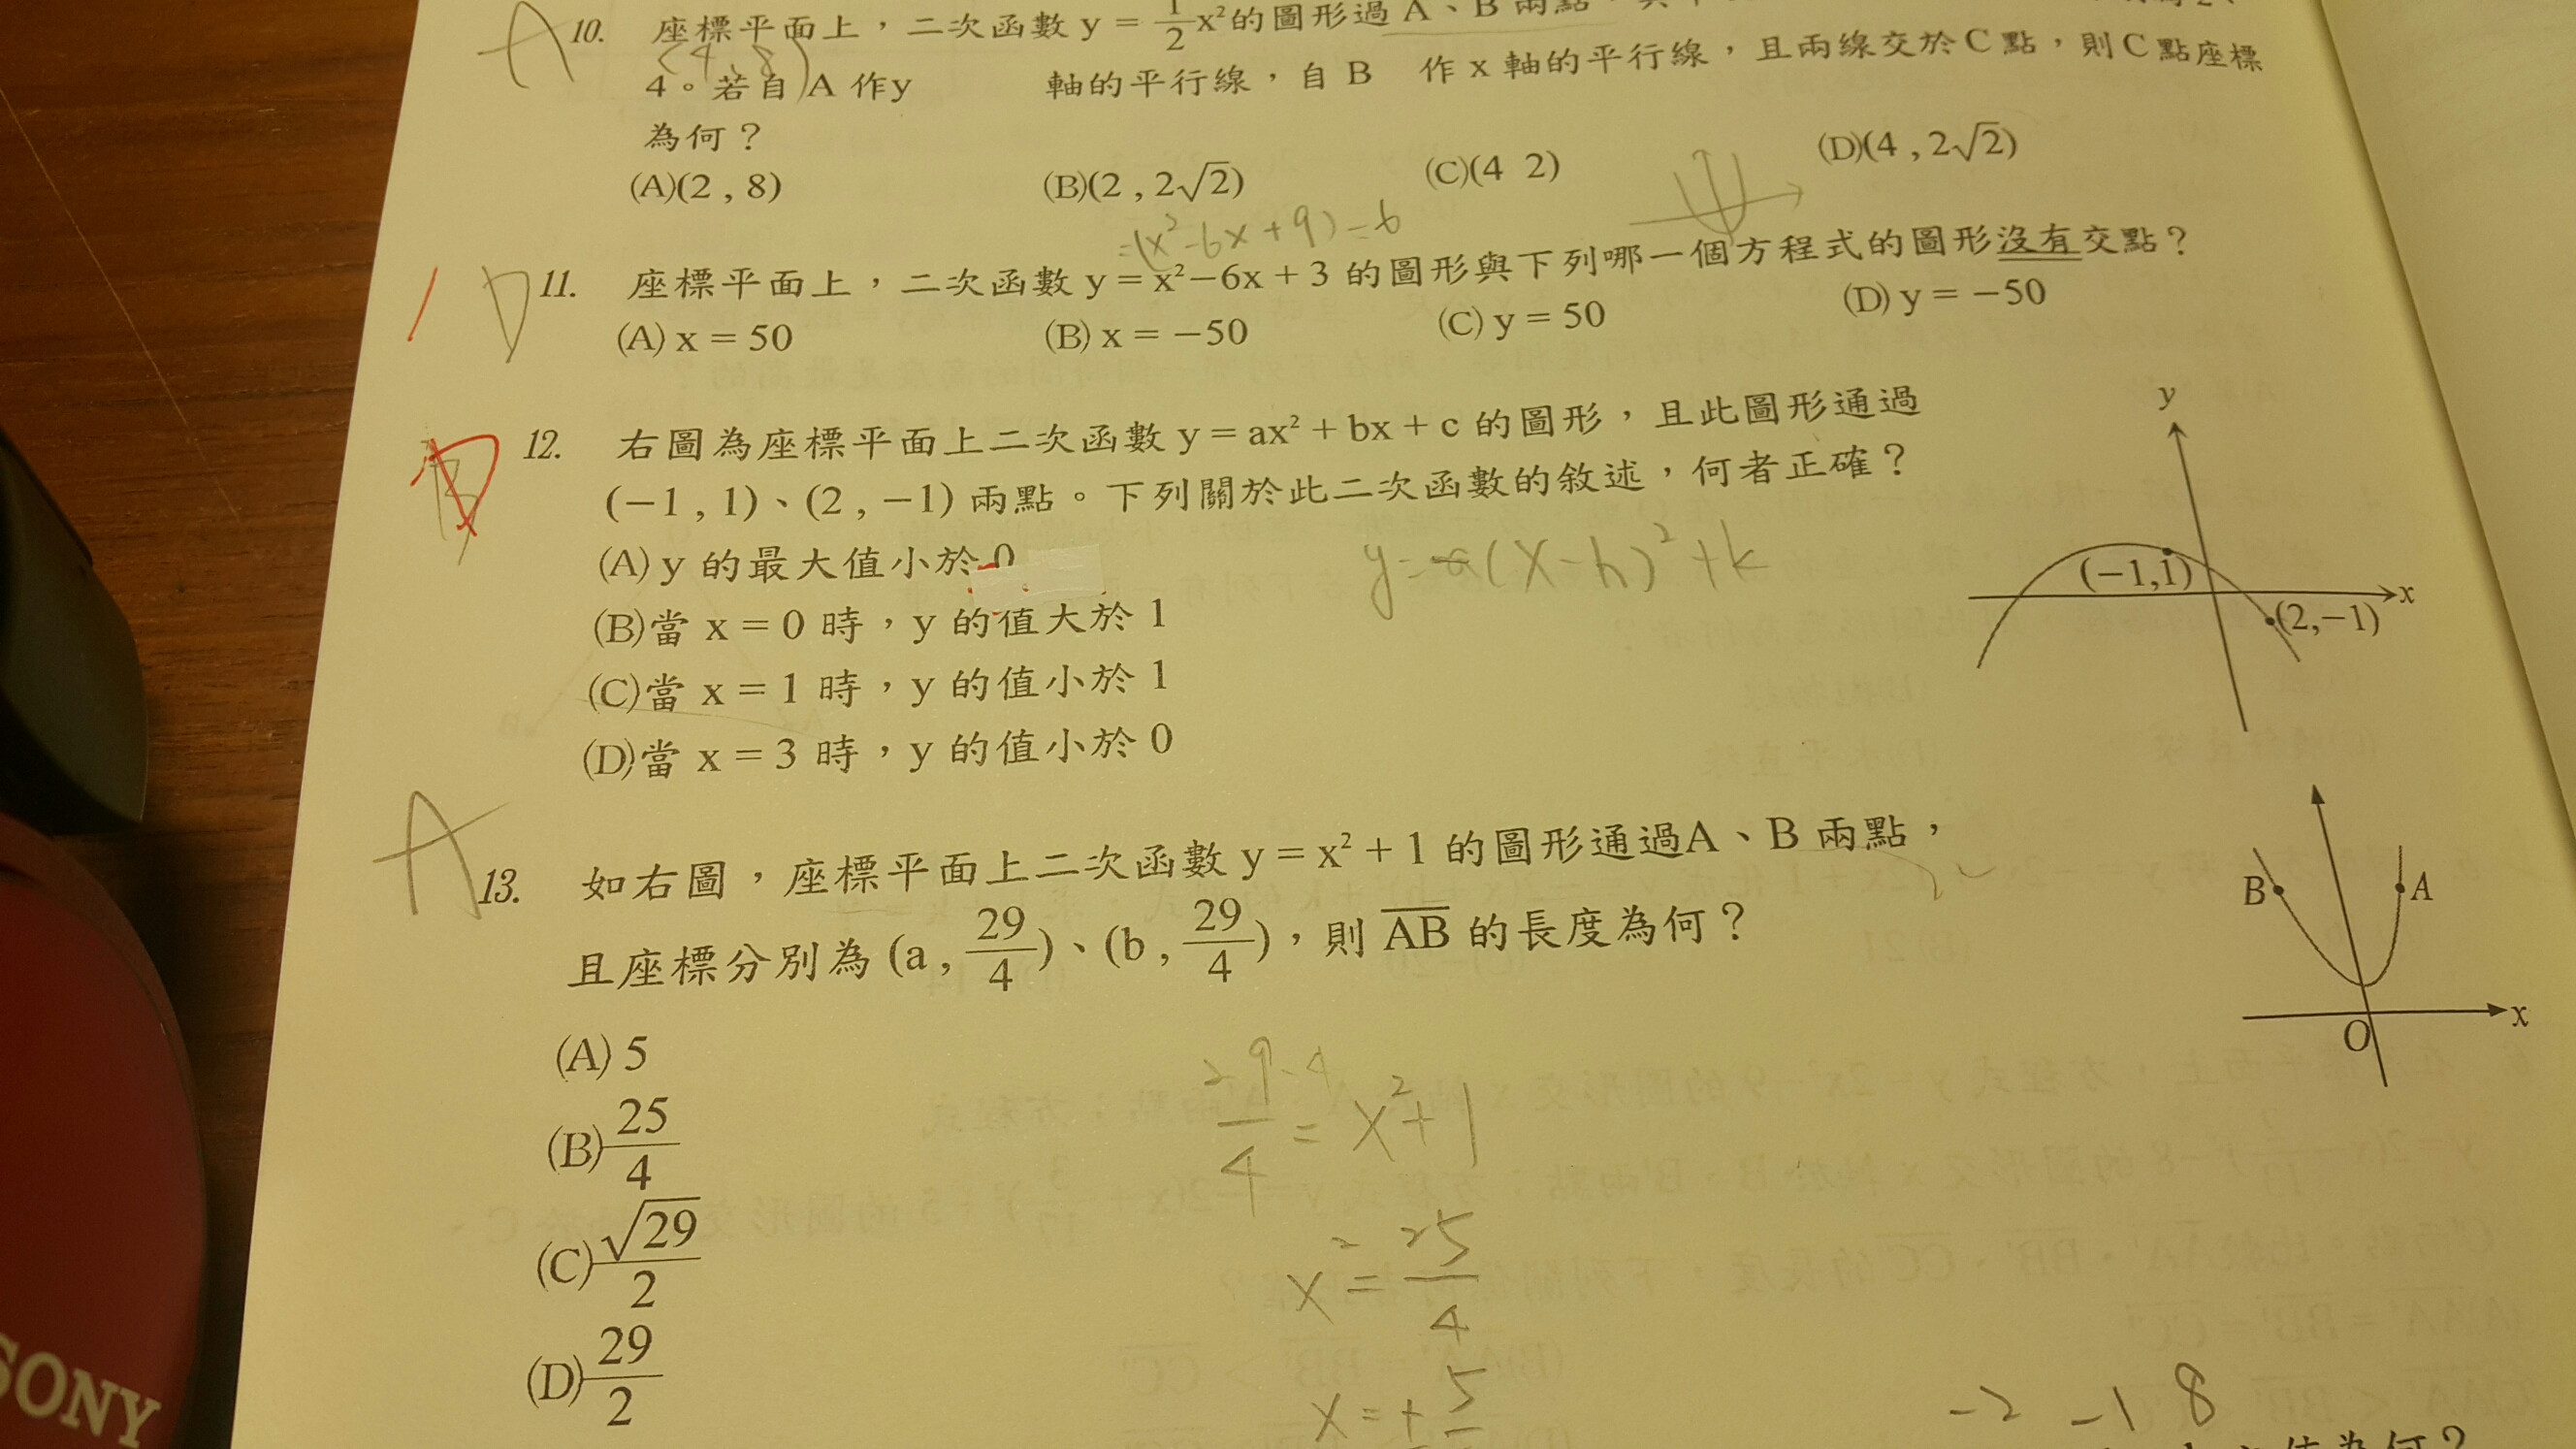 A 10. 座標平面上，二次函數 y = 1/2 x² 的圖形過 A、B 兩點，
(4, 8)
4。若自 A 作y 軸的平行線，自 B 作 x 軸的平行線，且兩線交於C點，則C點座標
為何？
(A)(2 , 8) (B)(2 , 2√2) (C)(4 2) (D)(4 , 2√2)
=(x²-6x+9)-6
D 11. 座標平面上，二次函數 y = x²−6x + 3 的圖形與下列哪一個方程式的圖形沒有交點？
(A) x = 50 (B) x = −50 (C) y = 50 (D) y = −50
D 12. 右圖為座標平面上二次函數 y = ax² + bx + c 的圖形，且此圖形通過
(−1 , 1)、(2 , −1) 兩點。下列關於此二次函數的敘述，何者正確？
(A) y 的最大值小於 0
y = a(x-h)²+k
(B)當 x = 0 時，y 的值大於 1
(C)當 x = 1 時，y 的值小於 1
(D)當 x = 3 時，y 的值小於 0
y
(−1,1)
x
(2,−1)
A 13. 如右圖，座標平面上二次函數 y = x² + 1 的圖形通過A、B 兩點，
且座標分別為 (a , 29/4)、(b , 29/4)，則 AB 的長度為何？
B A
x
O
(A) 5
(B) 25/4
(C) √29/2
(D) 29/2
29-4/4 = x²+1
x² = 25/4
x = ± 5
-2 -1 8
值為何？
SONY